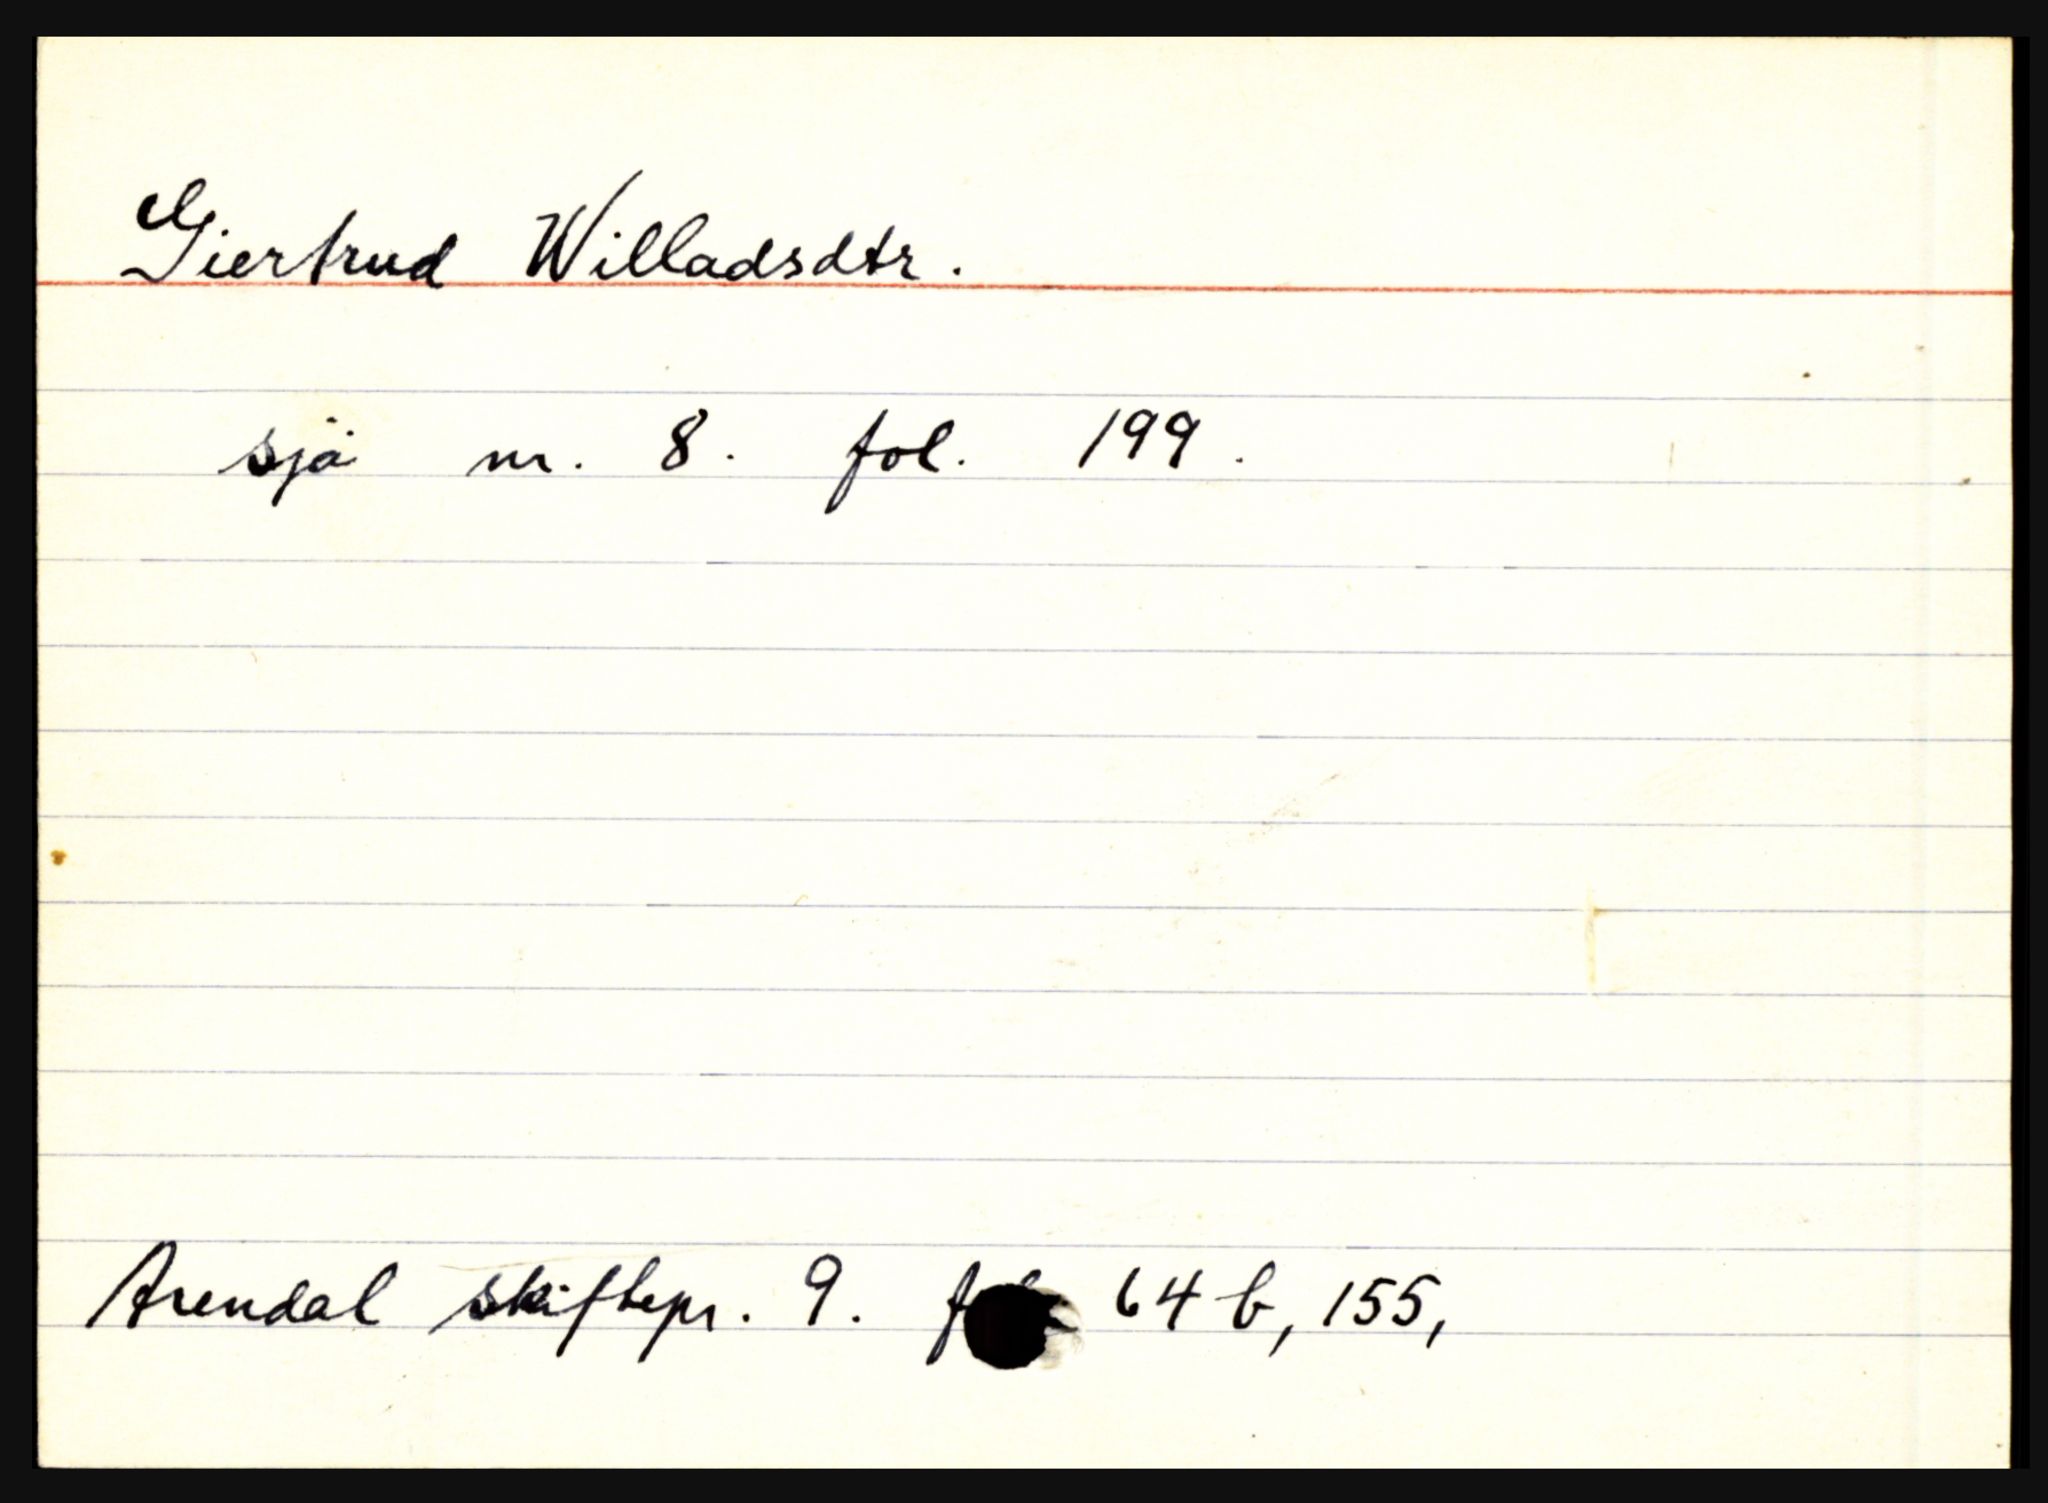 Giertrud Willadsdtr.
sjå nr. 8. fol. 199.
Arendal skiftepr. 9. 64 b, 155,